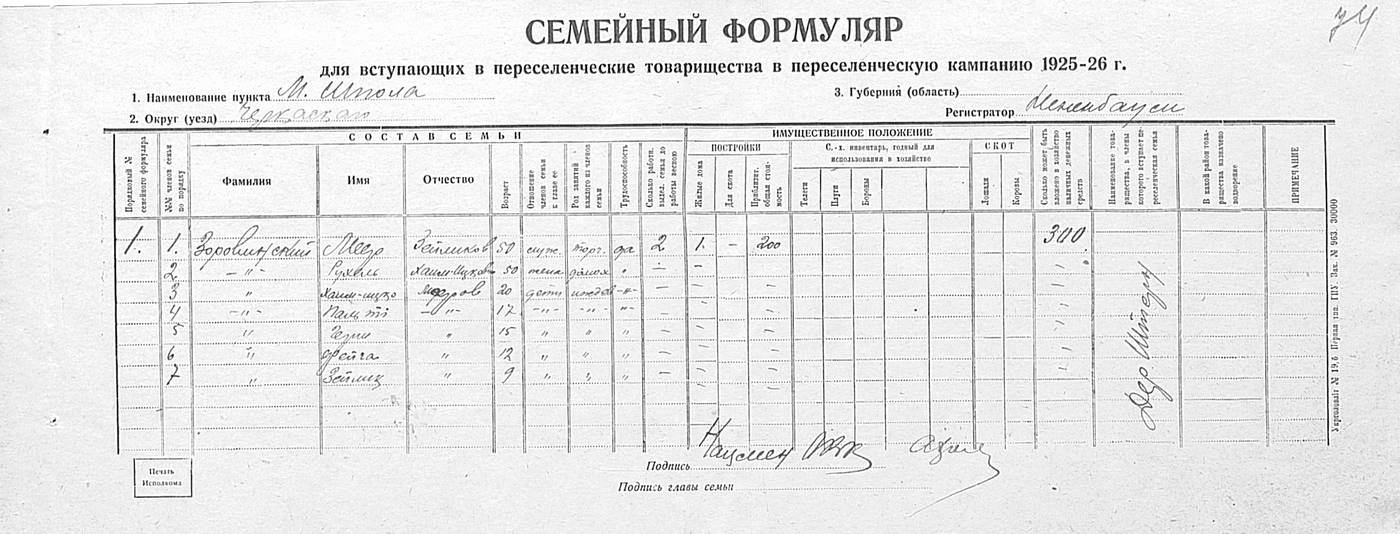 74
СЕМЕЙНЫЙ ФОРМУЛЯР
для вступающих в переселенческие товарищества в переселенческую кампанию 1925-26 г.
1. Наименование пункта М. Шпола
3. Губерния (область)
2. Округ (уезд) Черкаского
Регистратор
СОСТАВ СЕМЬИ
ИМУЩЕСТВЕННОЕ ПОЛОЖЕНИЕ
ПОСТРОЙКИ
С.-х. инвентарь, годный для использования в хозяйстве
СКОТ
Порядковый № семейного формуляра
№№ членов семьи по порядку
Фамилия
Имя
Отчество
Возраст
Отношение членов семьи к главе ее
Род занятий каждого из членов семьи
Трудоспособность
Сколько работн. выдел. семья до работы весною
Жилые дома
Для скота
Приблизит. общая стоимость
Телеги
Плуги
Бороны
Лошади
Коровы
Сколько может быть вложено в хозяйство наличных денежных средств
Наименование товарищества, в члены которого вступает переселенческая семья
В какой район товарищества назначено водворение
ПРИМЕЧАНИЕ
1. 1. Зоровлинский Меер Зейликов 50 служ. торг. да 2 1. – 200 300
2 –"– Рухель Хаим-Ицков 50 жена домох " – –
3 " Хаим-ицко Мееров 20 дети иждев –"– – –
4 –"– –"– 17 –"– –"– –"– – –
5 " " 15 " " " – –
6 " Фейга " 12 " " " – –
7 " Зейлик " 9 " " " – –
Дер Штерн
Печать Исполкома
Подпись Нацмен
Подпись главы семьи
Укрглавлит № 19,6 Первая тип. ГПУ. Зак. № 963. 30000